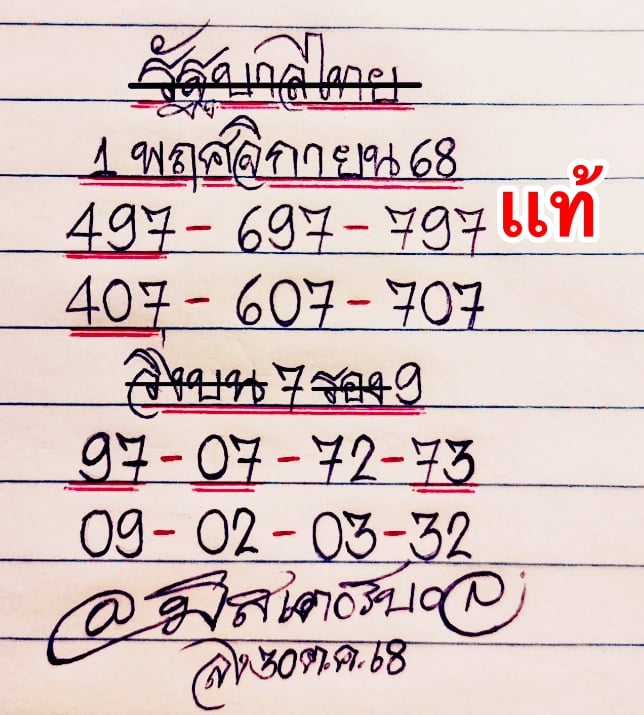 รัฐบาลไทย
1 พฤศจิกายน 68
497 - 697 - 797 แท้
407 - 607 - 707
วิ่งบน 7 รอง 9
97 - 07 - 72 - 73
09 - 02 - 03 - 32
30 ต.ค. 68